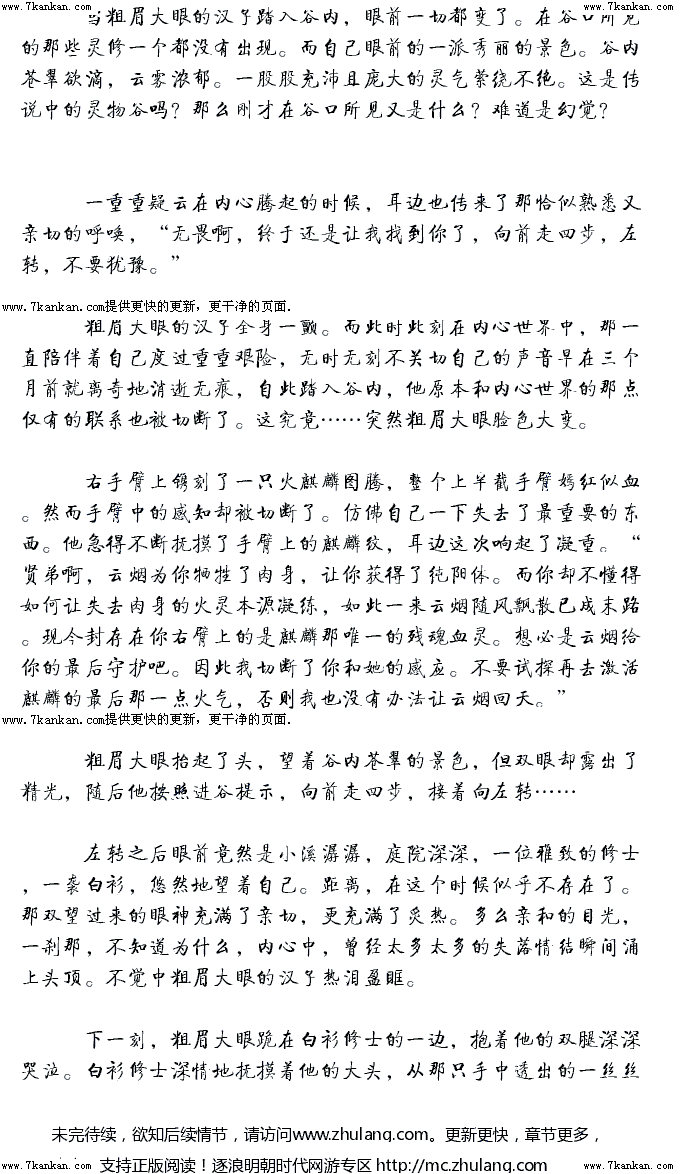 www.7kankan.com www.7kankan.com
当粗眉大眼的汉子踏入谷内，眼前一切都变了。在谷口所见
的那些灵修一个都没有出现。而自己眼前的一派秀丽的景色。谷内
苍翠欲滴，云雾浓郁。一股股充沛且庞大的灵气萦绕不绝。这是传
说中的灵物谷吗？那么刚才在谷口所见又是什么？难道是幻觉？
一重重疑云在内心腾起的时候，耳边也传来了那恰似熟悉又
亲切的呼唤，“无畏啊，终于还是让我找到你了，向前走四步，左
转，不要犹豫。”
www.7kankan.com提供更快的更新，更干净的页面.
粗眉大眼的汉子全身一颤。而此时此刻在内心世界中，那一
直陪伴着自己度过重重艰险，无时无刻不关切自己的声音早在三个
月前就离奇地消逝无痕，自此踏入谷内，他原本和内心世界的那点
仅有的联系也被切断了。这究竟……突然粗眉大眼脸色大变。
右手臂上镌刻了一只火麒麟图腾，整个上半截手臂嫣红似血
。然而手臂中的感知却被切断了。仿佛自己一下失去了最重要的东
西。他急得不断抚摸了手臂上的麒麟纹，耳边这次响起了凝重。“
贤弟啊，云烟为你牺牲了肉身，让你获得了纯阳体。而你却不懂得
如何让失去肉身的火灵本源凝练，如此一来云烟随风飘散已成末路
。现今封存在你右臂上的是麒麟那唯一的残魂血灵。想必是云烟给
你的最后守护吧。因此我切断了你和她的感应。不要试探再去激活
麒麟的最后那一点火气，否则我也没有办法让云烟回天。”
www.7kankan.com提供更快的更新，更干净的页面.
粗眉大眼抬起了头，望着谷内苍翠的景色，但双眼却露出了
精光，随后他按照进谷提示，向前走四步，接着向左转……
左转之后眼前竟然是小溪潺潺，庭院深深，一位雅致的修士
，一袭白衫，悠然地望着自己。距离，在这个时候似乎不存在了。
那双望过来的眼神充满了亲切，更充满了炙热。多么亲和的目光，
一刹那，不知道为什么，内心中，曾经太多太多的失落情结瞬间涌
上头顶。不觉中粗眉大眼的汉子热泪盈眶。
下一刻，粗眉大眼跪在白衫修士的一边，抱着他的双腿深深
哭泣。白衫修士深情地抚摸着他的大头，从那只手中透出的一丝丝
未完待续，欲知后续情节，请访问www.zhulang.com。更新更快，章节更多，
支持正版阅读！逐浪明朝时代网游专区 http://mc.zhulang.com
www.7kankan.com www.7kankan.com